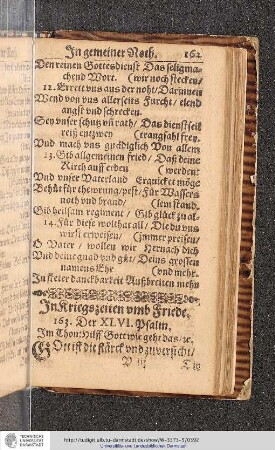 In gemeiner Noth. 162
Den reinen Gottesdienst Das seligma-
chend Wort. (wir noch stecken/
12. Errett uns aus der noht/ Darinnen
Wend von uns allerseits Furcht/ elend
angst und schrecken.
Sey unser schutz uñ rath/ Das dienstseil
reiß entzwey (trangsahl frey.
Und mach uns gnädiglich Von allem
13. Gib allgemeinen fried/ Daß deine
Kirch auff erden (werden:
Und unser Vaterland Erquicket möge
Behüt für thewrung/pest/ Für Wassers
noth und brand/ (lem stand.
Gib heilsam regiment/ Gib glück zu al-
14. Für diese wolthat all/ Die du uns
wirst erweisen/ (jmmer preisen/
O Vater/ wollen wir Hernach dich
Und deine gnad und güt/ Deins grossen
namens Ehr (und mehr.
In steter danckbarkeit Außbreiten mehr
In Kriegszeiten umb Friede.
163. Der XLVI. Psalm.
Im Thon: Hilff Gott wie geht das/ ꝛc.
GOtt ist die stärck und zuversicht/